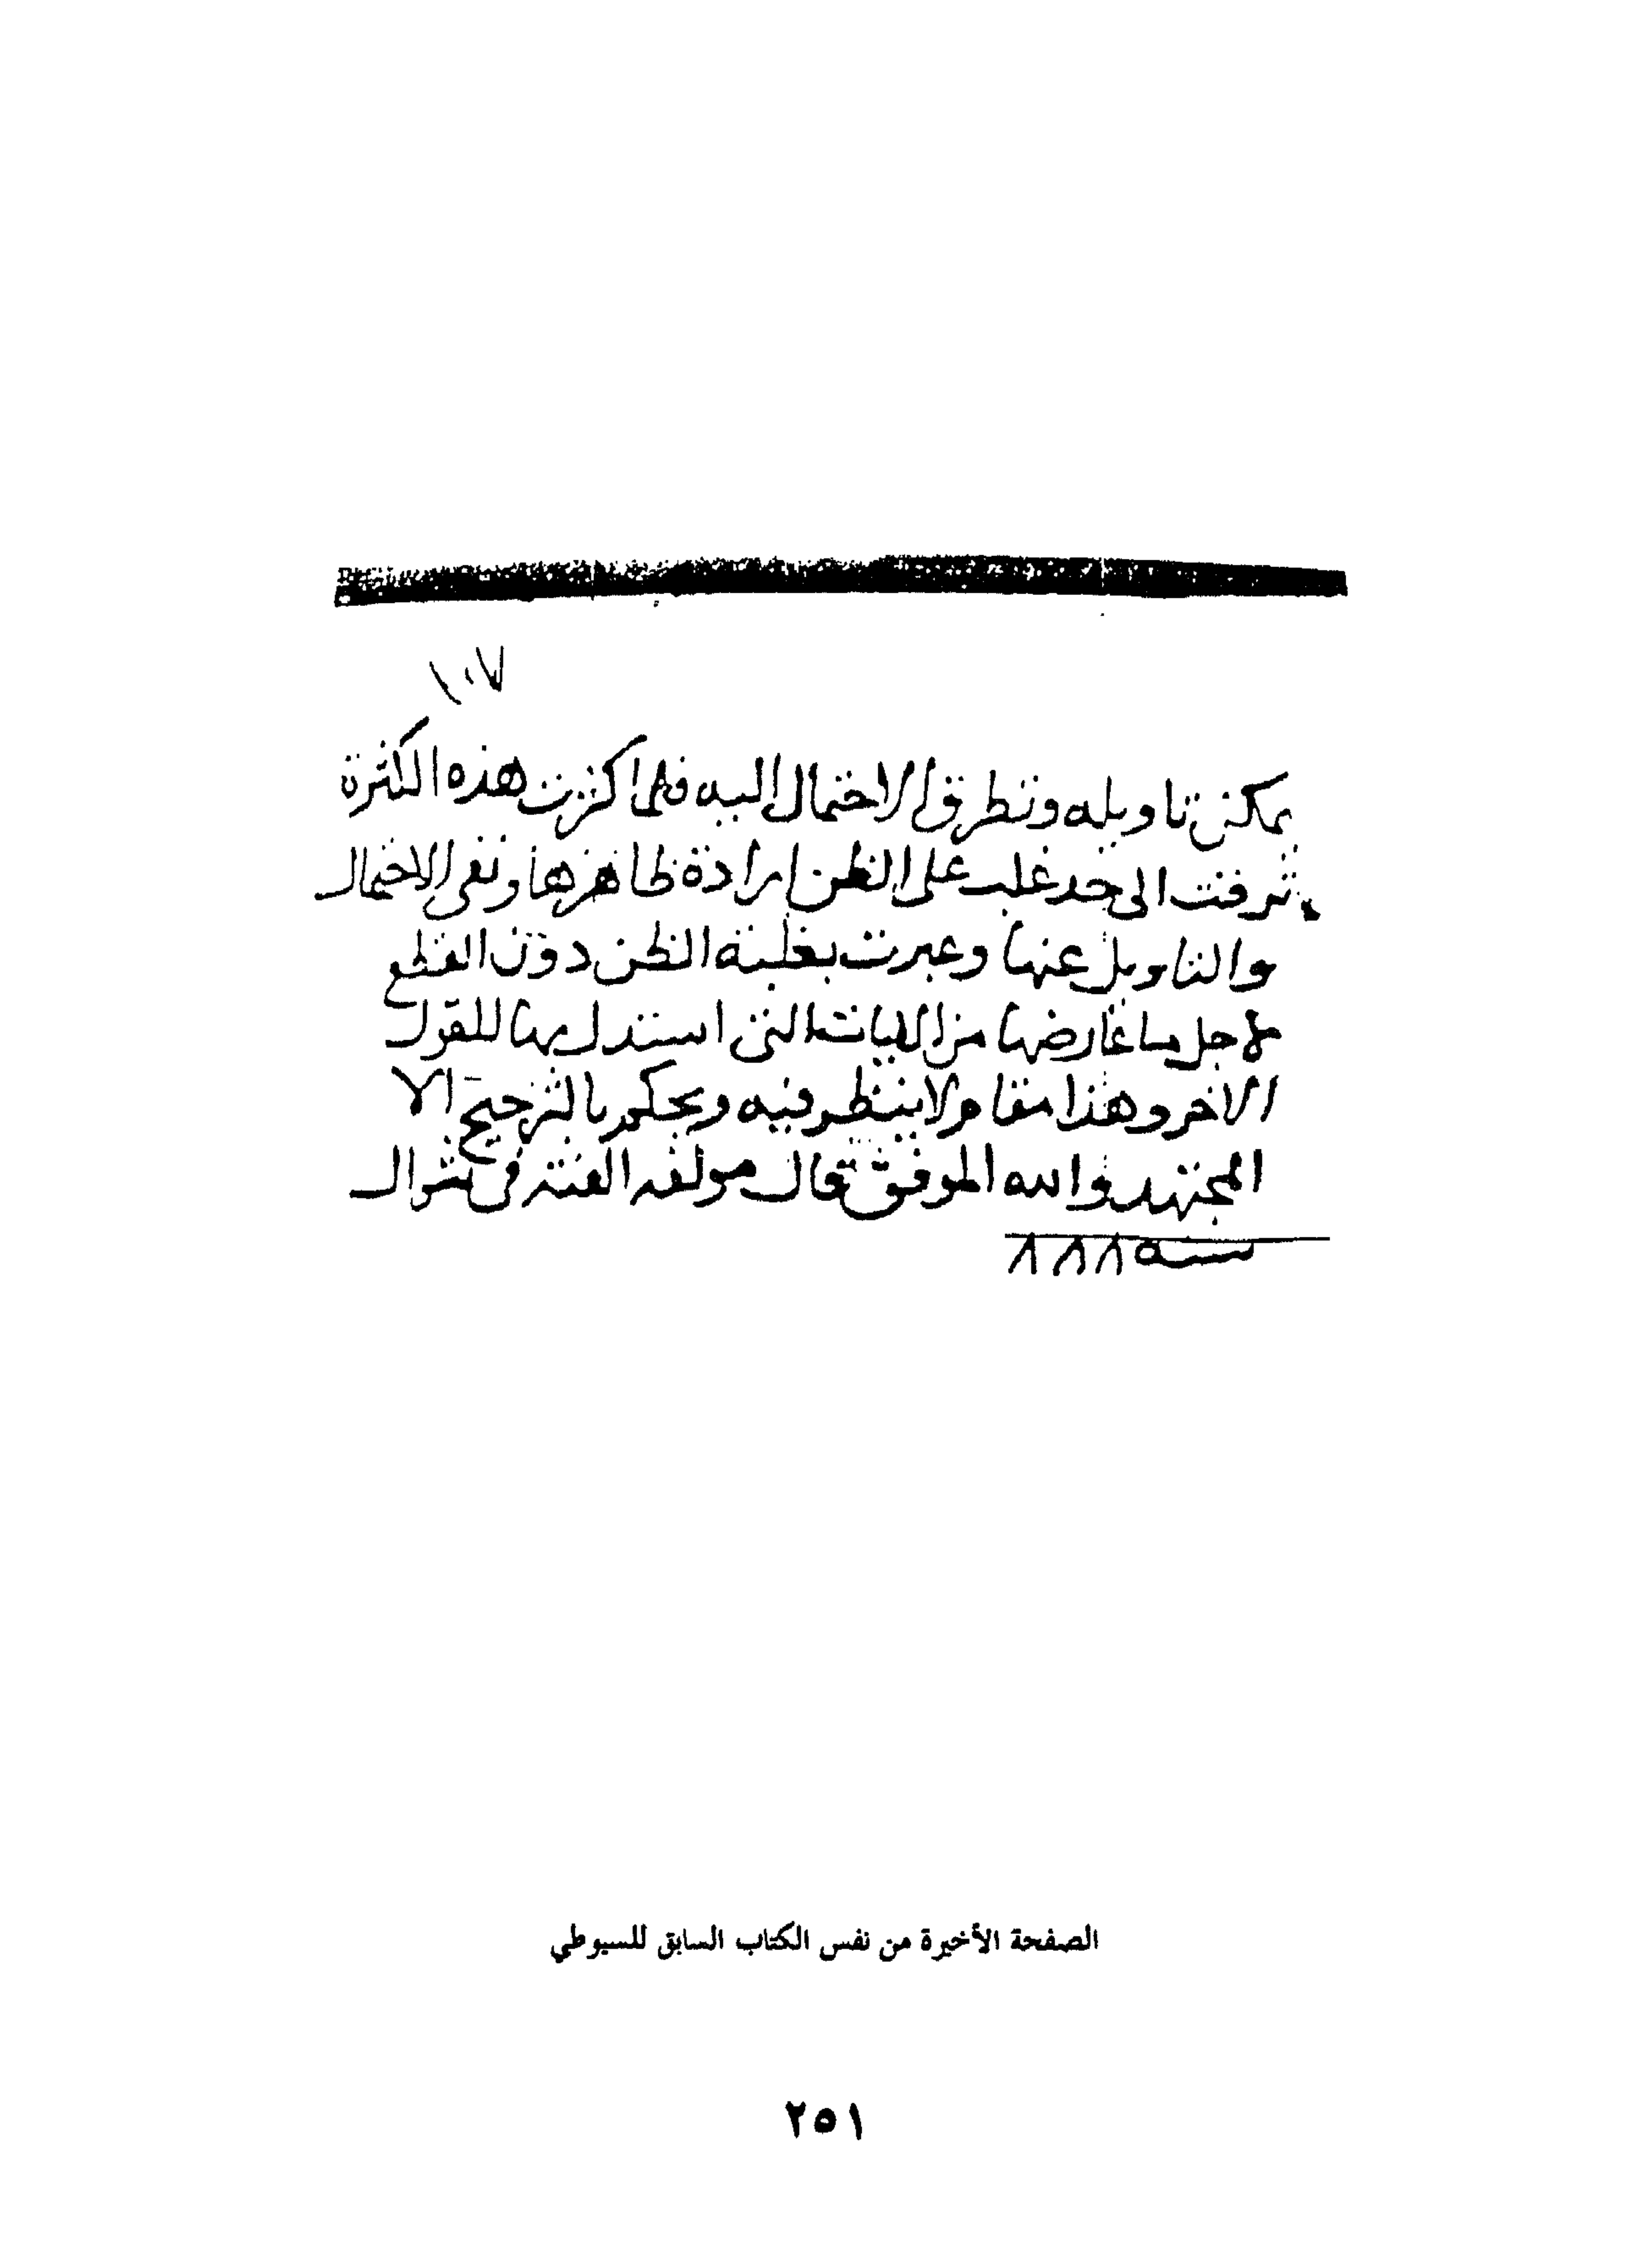 ١٠٧
يمكن تاويله وتطرق الاحتمال اليه فلما كثرت هذه الكثرة
ترقت الى حد غلب على الظن ارادة ظاهرها ونفى الاحتمال
والتاويل عنها وعبرت بغلبة الظن دون القطع
لاجل ما عارضها من الايات التى استدل بها للقول
الاخر وهذا مقام لا ينظر فيه ويحكم بالترجيح الا
المجتهد والله الموفق قال مولفه الفته فى شوال
سنة ٨٨٨
الصفحة الأخيرة من نفس الكتاب السابق للسيوطي
٢٥١